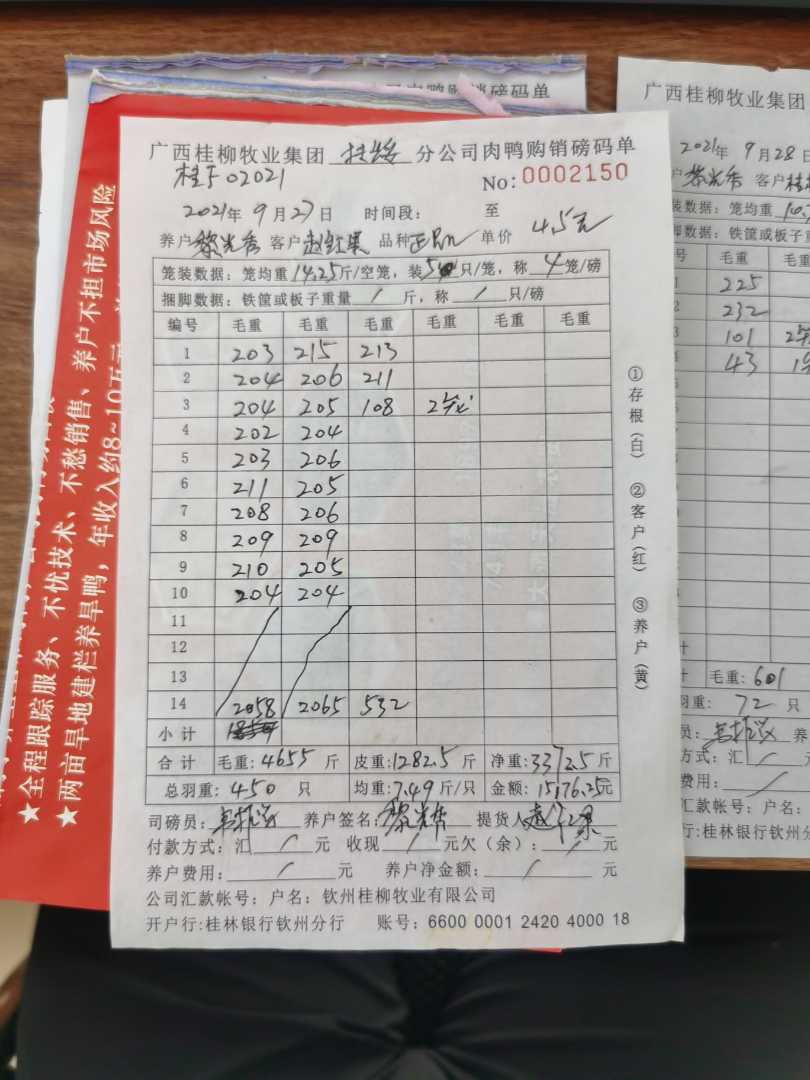 广西桂柳牧业集团 扶绥 分公司肉鸭购销磅码单
No:0002150
2021年 9月27日 时间段: 至
养户 黎光秀 客户 赵红果 品种 单价 4.5元
笼装数据: 笼均重14.25斤/空笼, 装5只/笼, 称4笼/磅
捆脚数据: 铁筐或板子重量/斤, 称/只/磅
编号 毛重 毛重 毛重 毛重 毛重 毛重
1 203 215 213
2 204 206 211
3 204 205 108 2笼
4 202 204
5 203 206
6 211 205
7 208 206
8 209 209
9 210 205
10 204 204
11
12
13
14 2058 2065 532
小计
合计 毛重:4655斤 皮重:1282.5斤 净重:3372.5斤
总羽重: 450 只 均重:7.49斤/只 金额: 15176.25元
司磅员: 养户签名: 黎光秀 提货人
付款方式: 汇 / 元 收现 / 元欠(余): / 元
养户费用: / 元 养户净金额: / 元
公司汇款帐号: 户名: 钦州桂柳牧业有限公司
开户行:桂林银行钦州分行 账号: 6600 0001 2420 4000 18
①存根(白) ②客户(红) ③养户(黄)
★全程跟踪服务、不忧技术、不愁销售、养户不担市场风险
★两亩旱地建栏养旱鸭, 年收入约8~10万元
广西桂柳牧业集团
2021年 9月28日
黎光秀 客户
装数据: 笼均重
脚数据: 铁筐或板子重
号 毛重 毛重
225
232
101
43
毛重: 601
羽重: 72 只
方式: 汇 /
费用: /
汇款帐号: 户名:
行:桂林银行钦州分